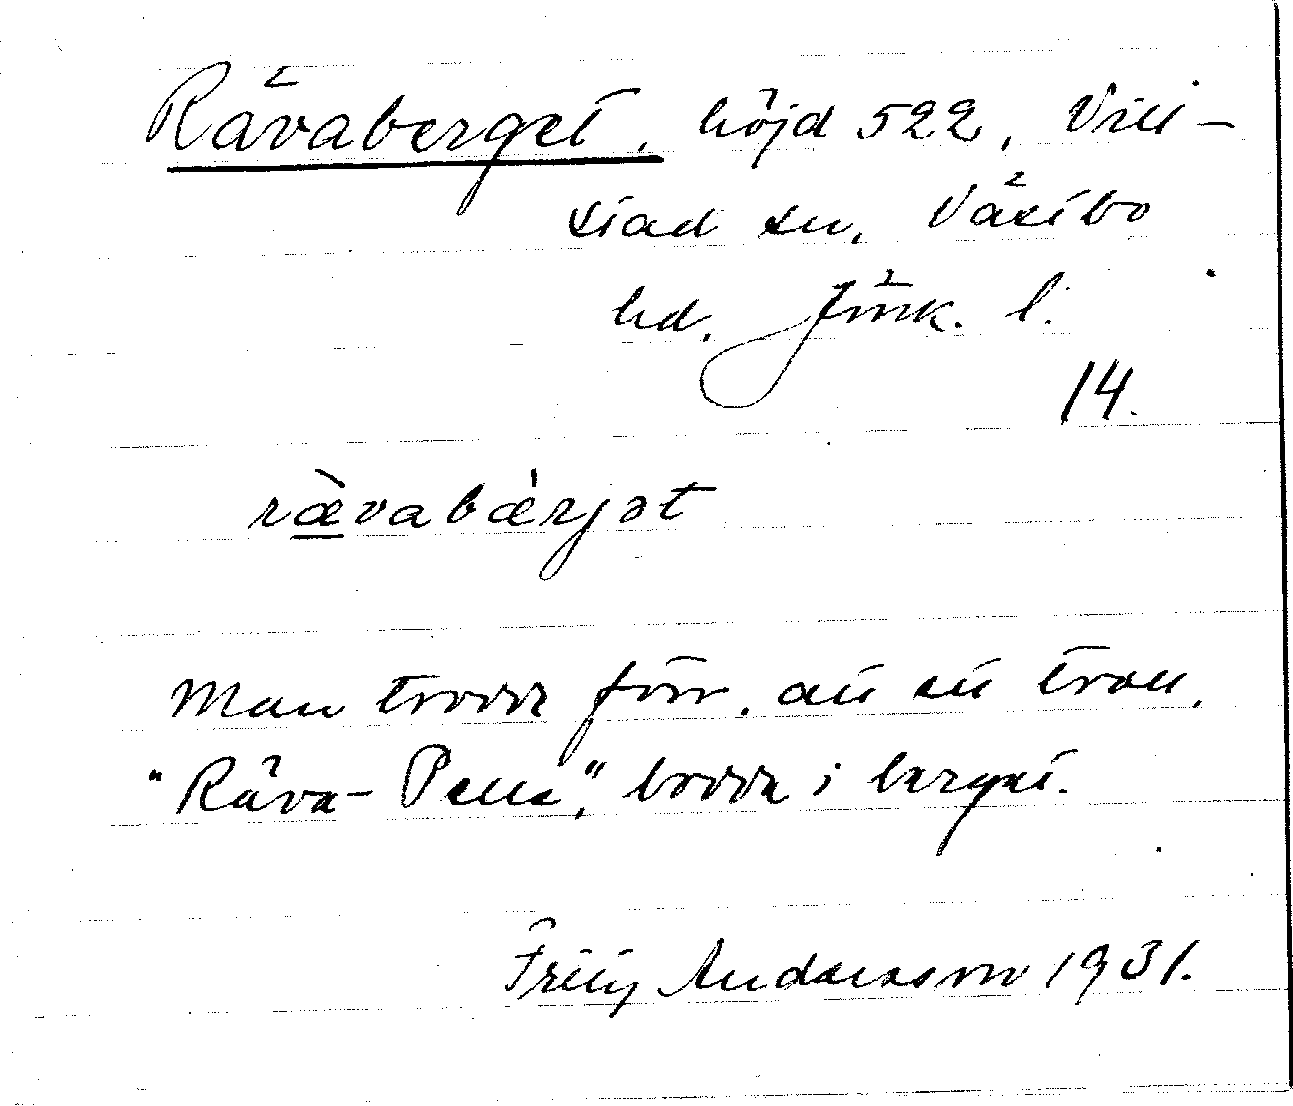 Rävaberget. höjd 522, Vill-
stad sn, Västbo
hd. Jönk. l.
14.
rævabærjət
Man trodde förr, att ett troll,
"Räva-Pelle," bodde i berget.
Fritz Andersson 1931.